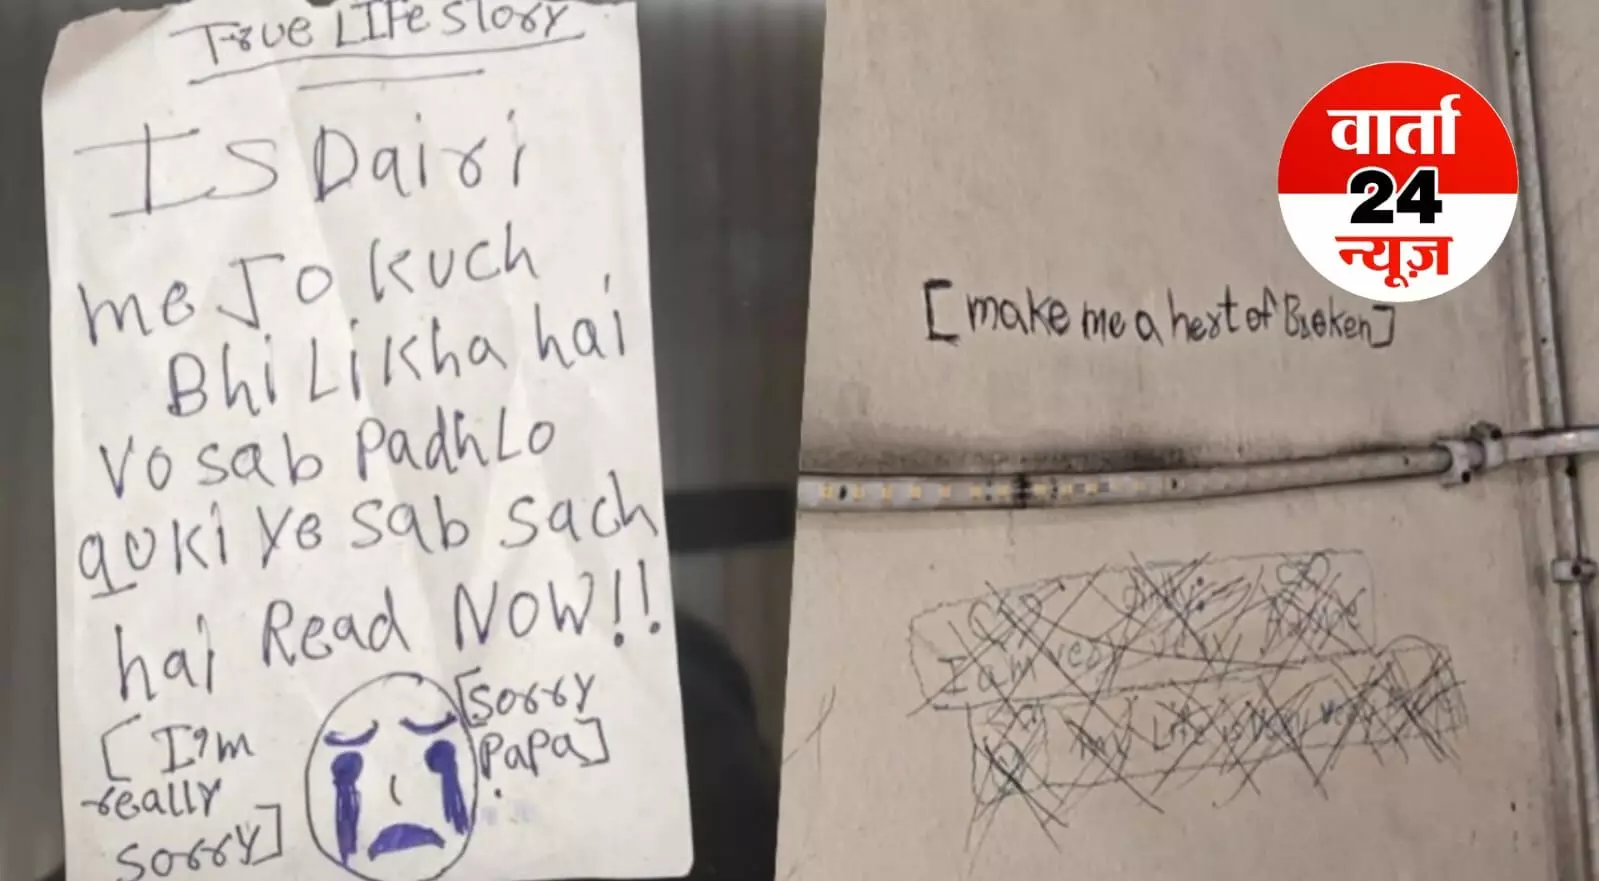 True LIFe Story
Is Dairi
me Jo kuch
Bhi Likha hai
Vo sab Padh Lo
quki Ye sab sach
hai Read NOW!!
[Sorry
Papa]
[I'm
really
sorry]
वार्ता
24
न्यूज़
[make me a hert of Broken]
I am very
my Life is very very